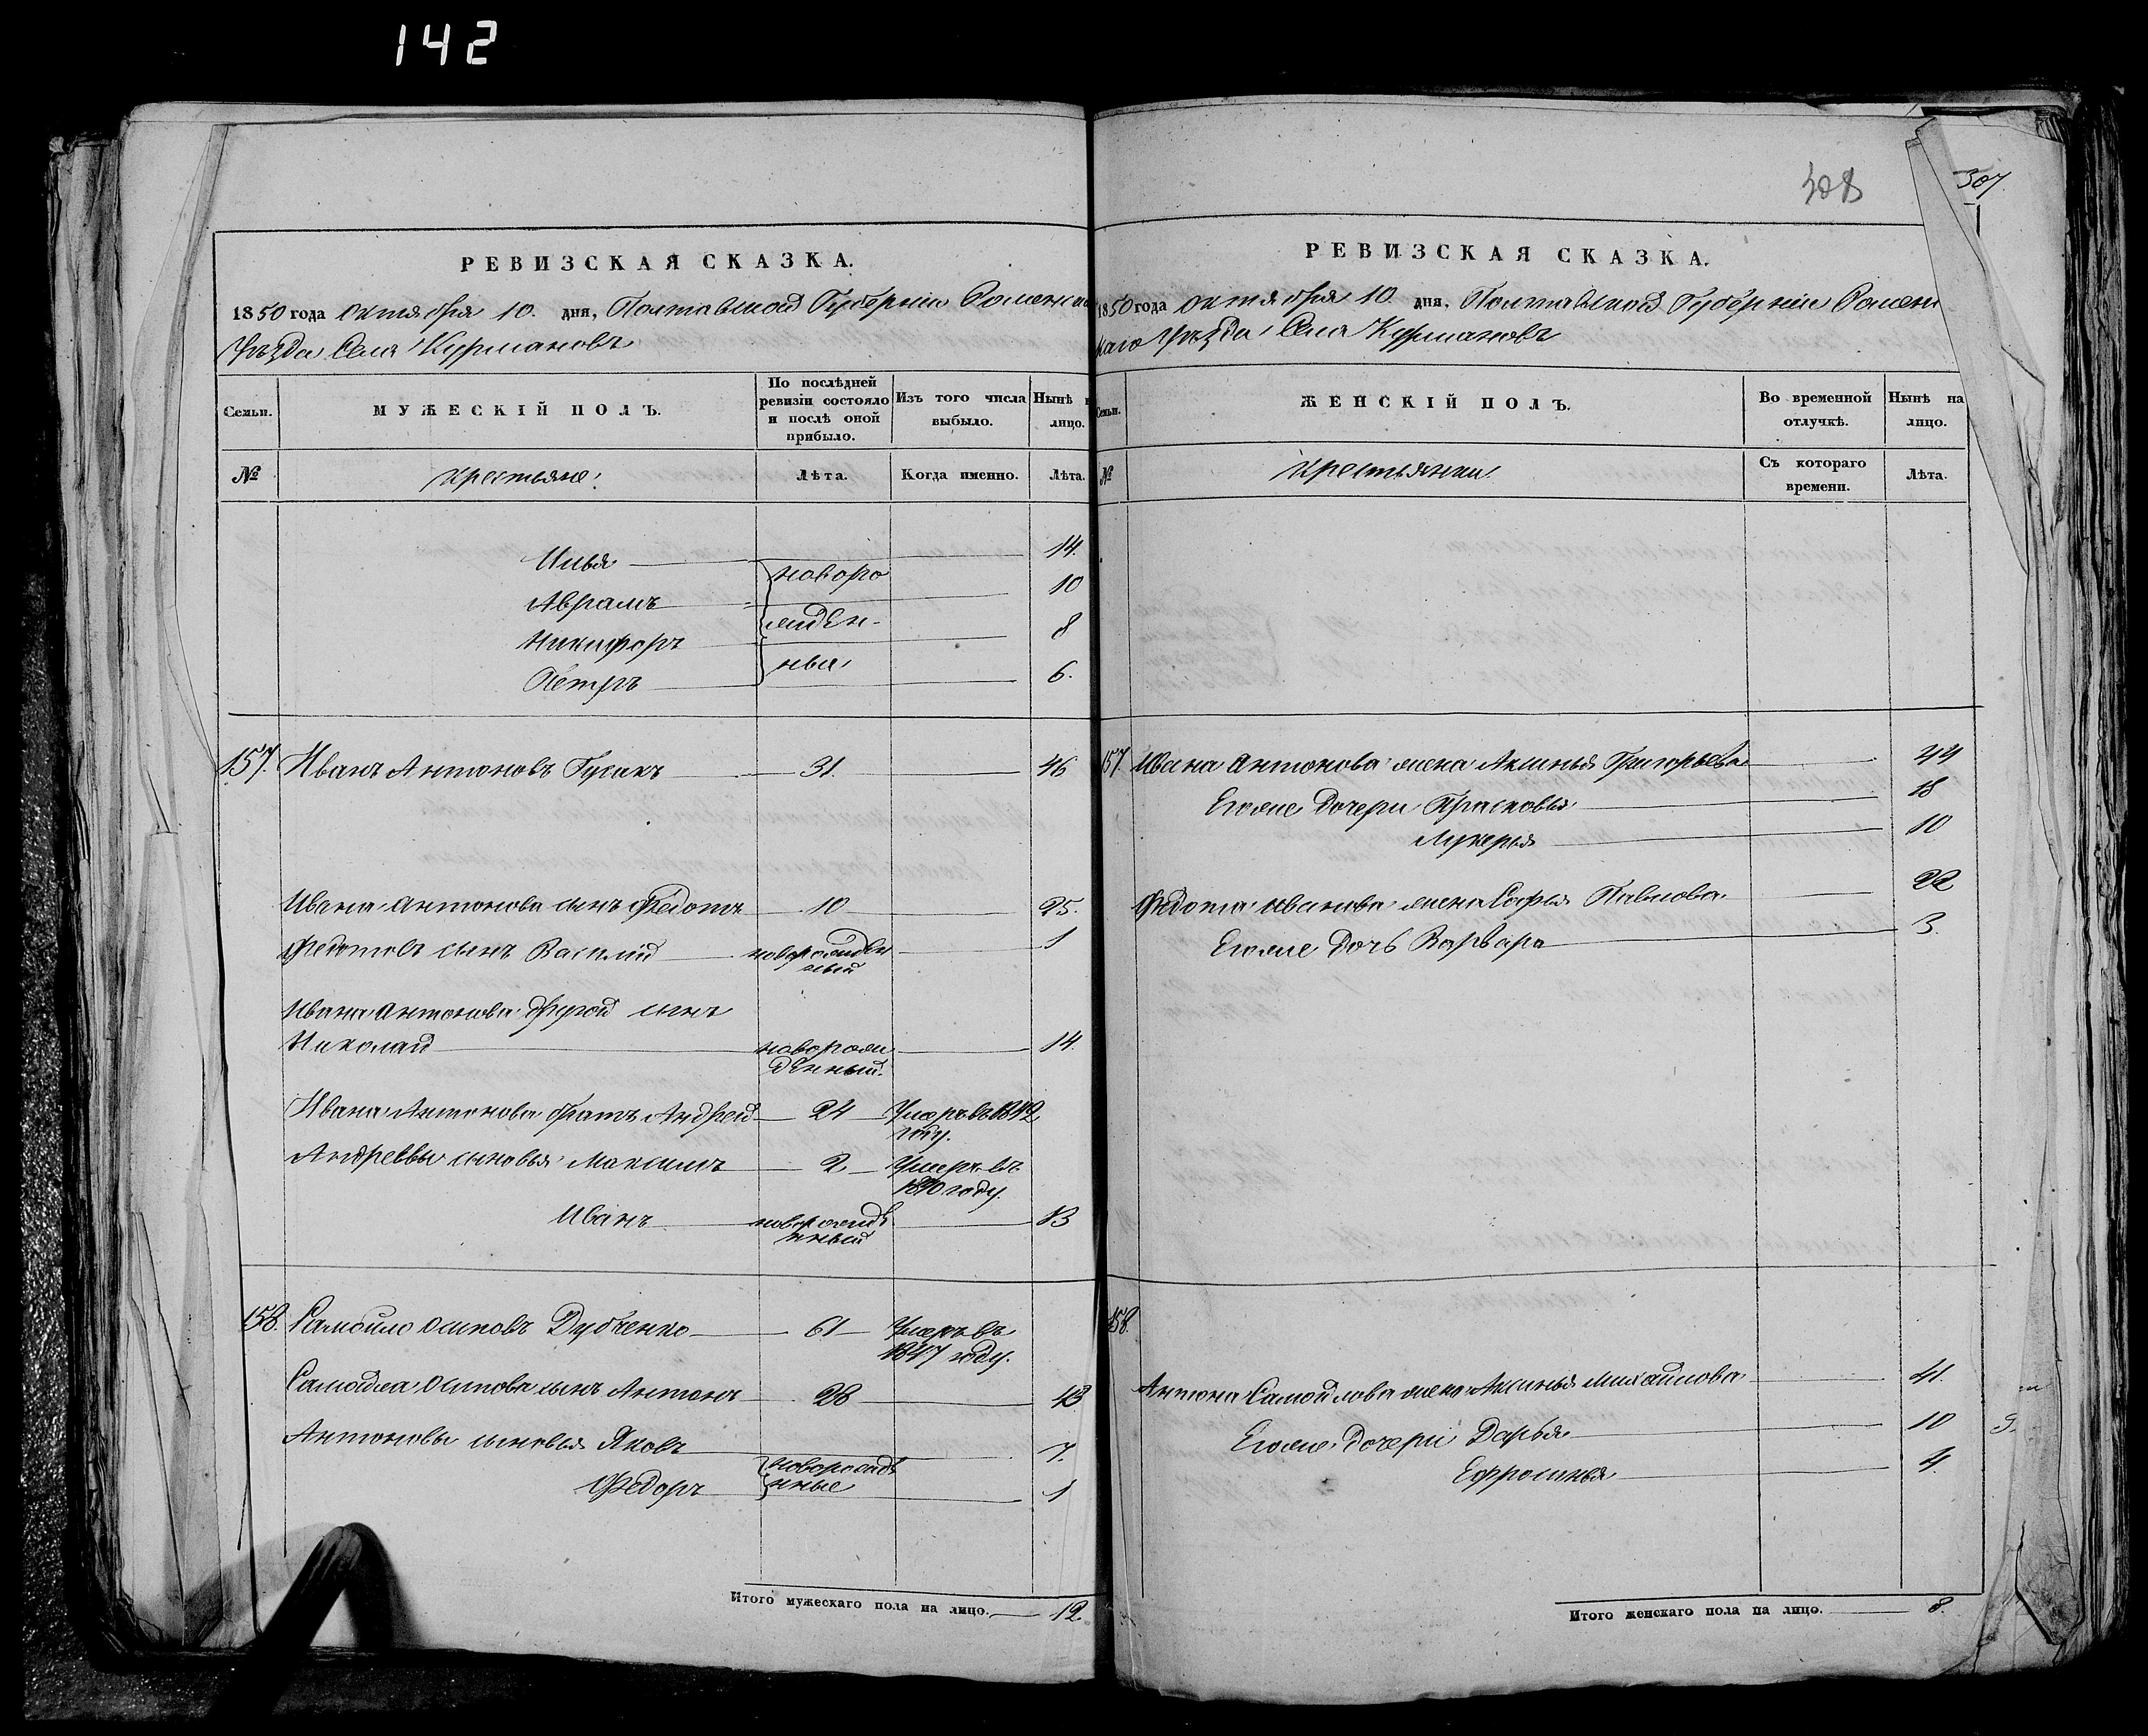 142
308
307.
РЕВИЗСКАЯ СКАЗКА.
1850 года октября 10. дня, Полтавской Губерніи Роменска
Уѣзда Села Курмановъ
Семьи.
МУЖЕСКІЙ ПОЛЪ.
По послѣдней ревизіи состояло и послѣ оной прибыло.
Изъ того числа выбыло.
Нынѣ на лицо.
№
крестьяне.
Лѣта.
Когда именно.
Лѣта.
Илья 14.
Аврамъ 10
Никифоръ 8
Петръ 6.
новоро
жден-
ные
157. Иванъ Антоновъ Гусакъ 31. 46
Ивана Антонова сынъ Федотъ 10 25.
Федотовъ сынъ Василій новорожден 1
ный
Ивана Антонова другой сынъ
Николай новорож 14.
денный.
Ивана Антонова братъ Андрей 24 Умеръ въ 1842
году.
Андреевы сыновья Максимъ 2 Умеръ въ
1840 году.
Иванъ новорожде 13
нный
158. Самойло Осиповъ Дубченко 61 Умеръ въ
1847 году.
Самойла Осипова сынъ Антонъ 28 43
Антоновы сыновья Яковъ 7.
новорожде
Федоръ нные 1
Итого мужескаго пола на лицо. 12.
РЕВИЗСКАЯ СКАЗКА.
1850 года октября 10. дня, Полтавской Губерніи Роменс
каго Уѣзда Села Курмановъ
Семьи.
ЖЕНСКІЙ ПОЛЪ.
Во временной отлучкѣ.
Нынѣ на лицо.
№
крестьянки.
Съ котораго времени.
Лѣта.
157. Ивана Антонова жена Аксинья Григорьева 44
Егоже дочери Прасковья 18
Лукерья 10
Федота Иванова жена Софья Павлова 22
Егоже дочь Варвара 3.
158.
Антона Самойлова жена Аксинья Михайлова 41.
Егоже дочери Дарья 10
Ефросинья 4.
Итого женскаго пола на лицо. 8.